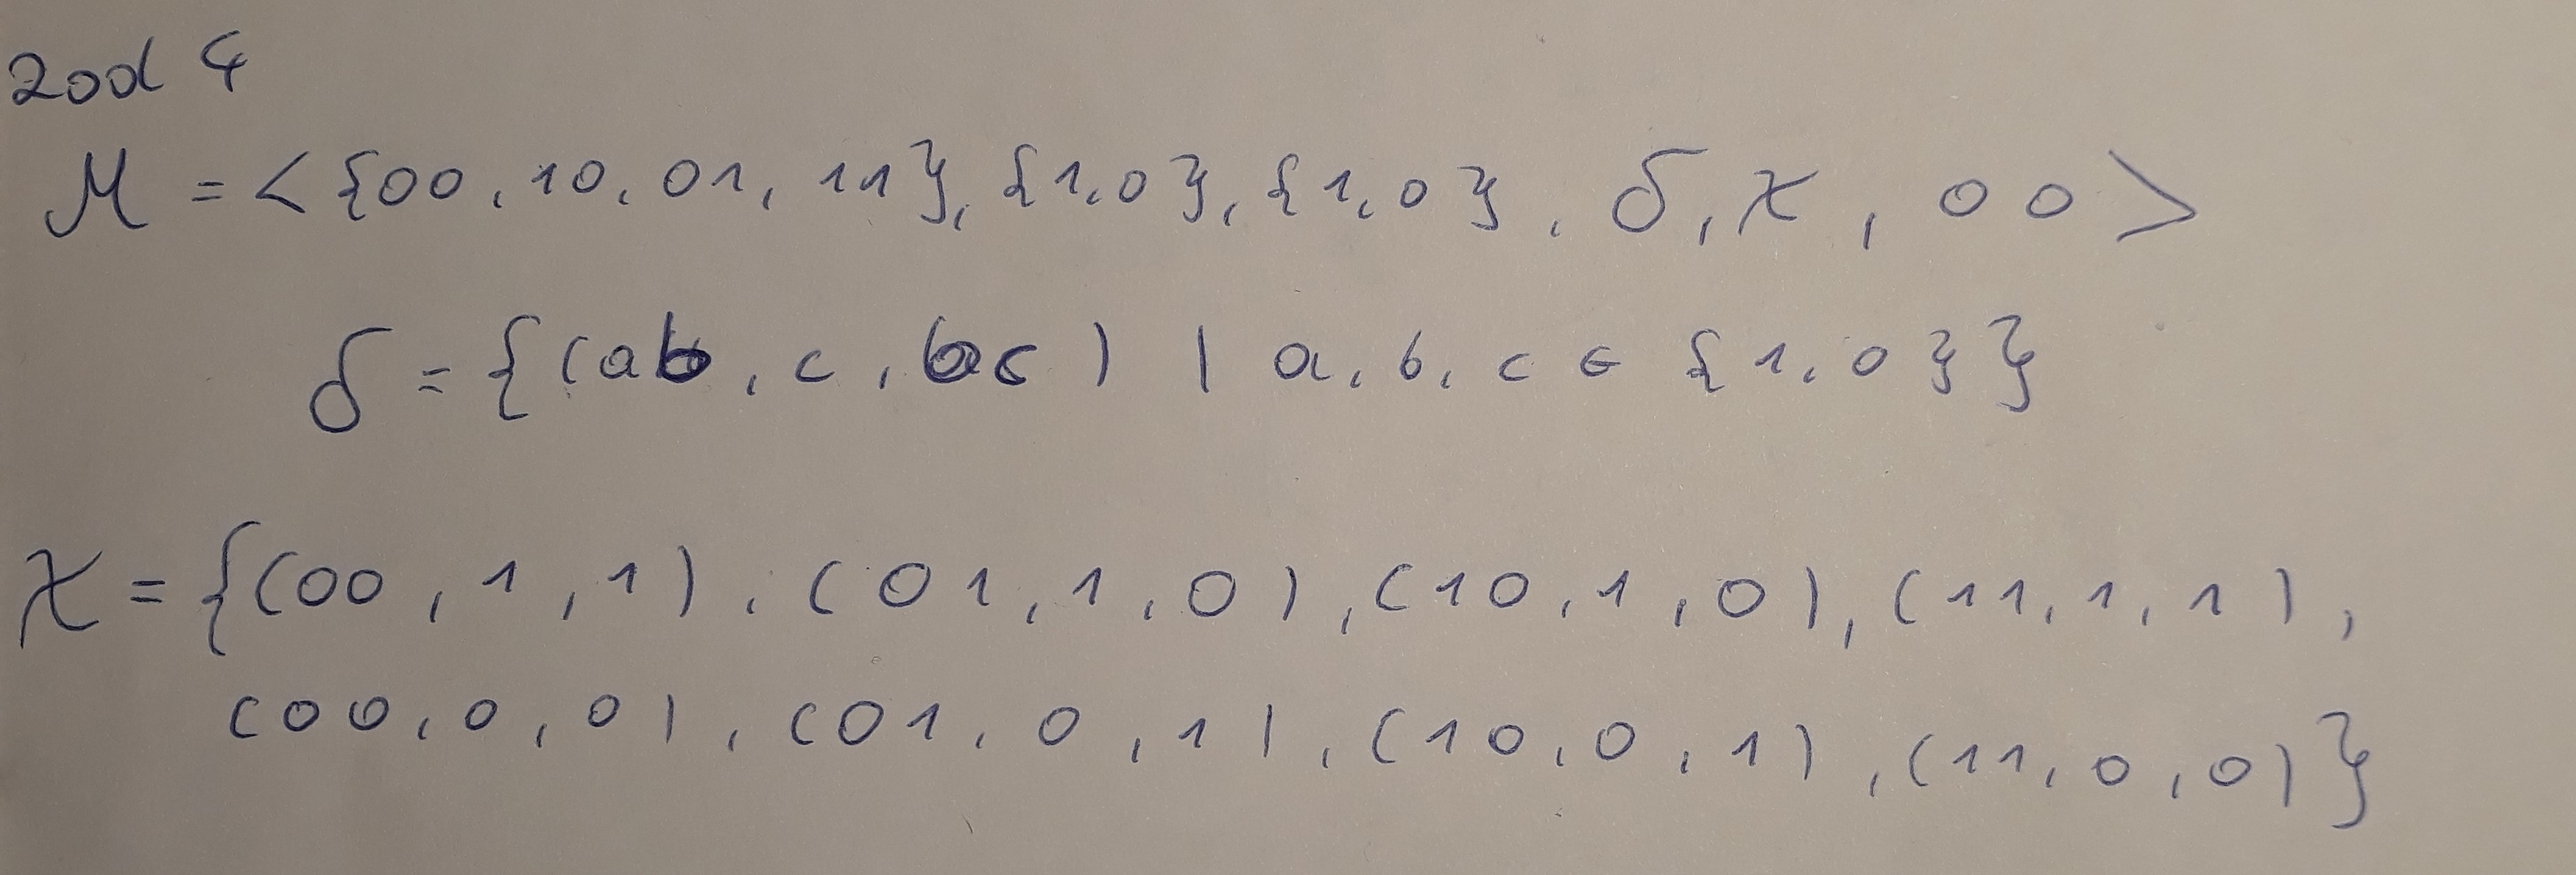 Zad 4
M = <{00, 10, 01, 11}, {1,0}, {1,0}, δ, χ, 00>
δ = {(ab, c, bc) | a, b, c ∈ {1,0}}
χ = {(00, 1, 1), (01, 1, 0), (10, 1, 0), (11, 1, 1),
(00, 0, 0), (01, 0, 1), (10, 0, 1), (11, 0, 0)}